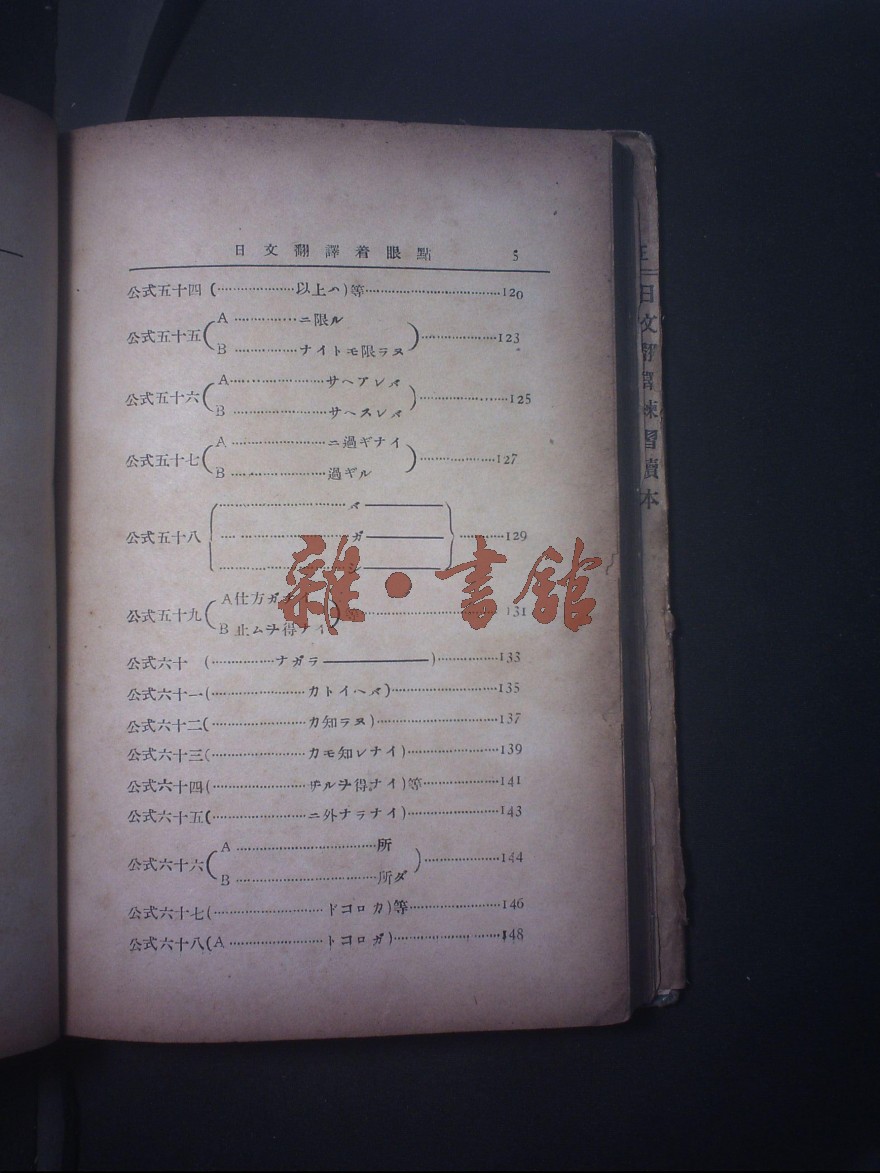 日文翻譯着眼點 5
公式五十四 (……………以上ハ)等……………120
A ……………ニ限ル
公式五十五 ……………123
B ……………ナイトモ限ラヌ
A ……………サヘアレバ
公式五十六 ……………125
B ……………サヘスレバ
A ……………ニ過ギナイ
公式五十七 ……………127
B ……………過ギル
……………バ ————
公式五十八 ……………ガ ———— ……………129
……………シ ————
A 仕方ガナイ
公式五十九 ……………131
B 止ムヲ得ナイ
公式六十 (……………ナガラ————)……………133
公式六十一(……………カトイヘバ)……………135
公式六十二(……………カ知ラヌ)……………137
公式六十三(……………カモ知レナイ)……………139
公式六十四(……………ザルヲ得ナイ)等……………141
公式六十五(……………ニ外ナラナイ)……………143
A ……………所
公式六十六 ……………144
B ……………所ダ
公式六十七(……………ドコロカ)等……………146
公式六十八(A ……………トコロガ)……………148
日文翻譯練習讀本
雜·書館